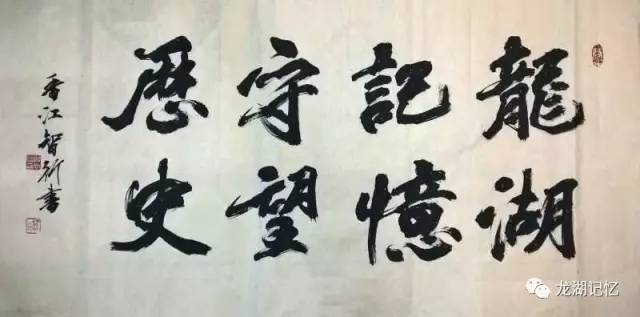 龍湖
記憶
守望
歷史
香江智行書
龙湖记忆